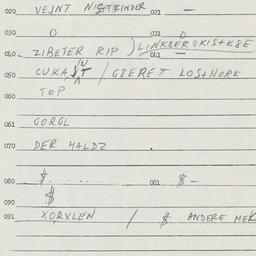 020 VEJNT NIGTKINDER 021 —
030 0 031 0
040 ZIBETER RIP ) LINKBERQKIST+KBE
041 —
050 CUKA, T / GSERET LOS+NORE
060 TOP
061 GORGL
070 DER HALDZ .
080 $ 081 $ -
090 $
091 XORXLEN / $ ANDERE MEK